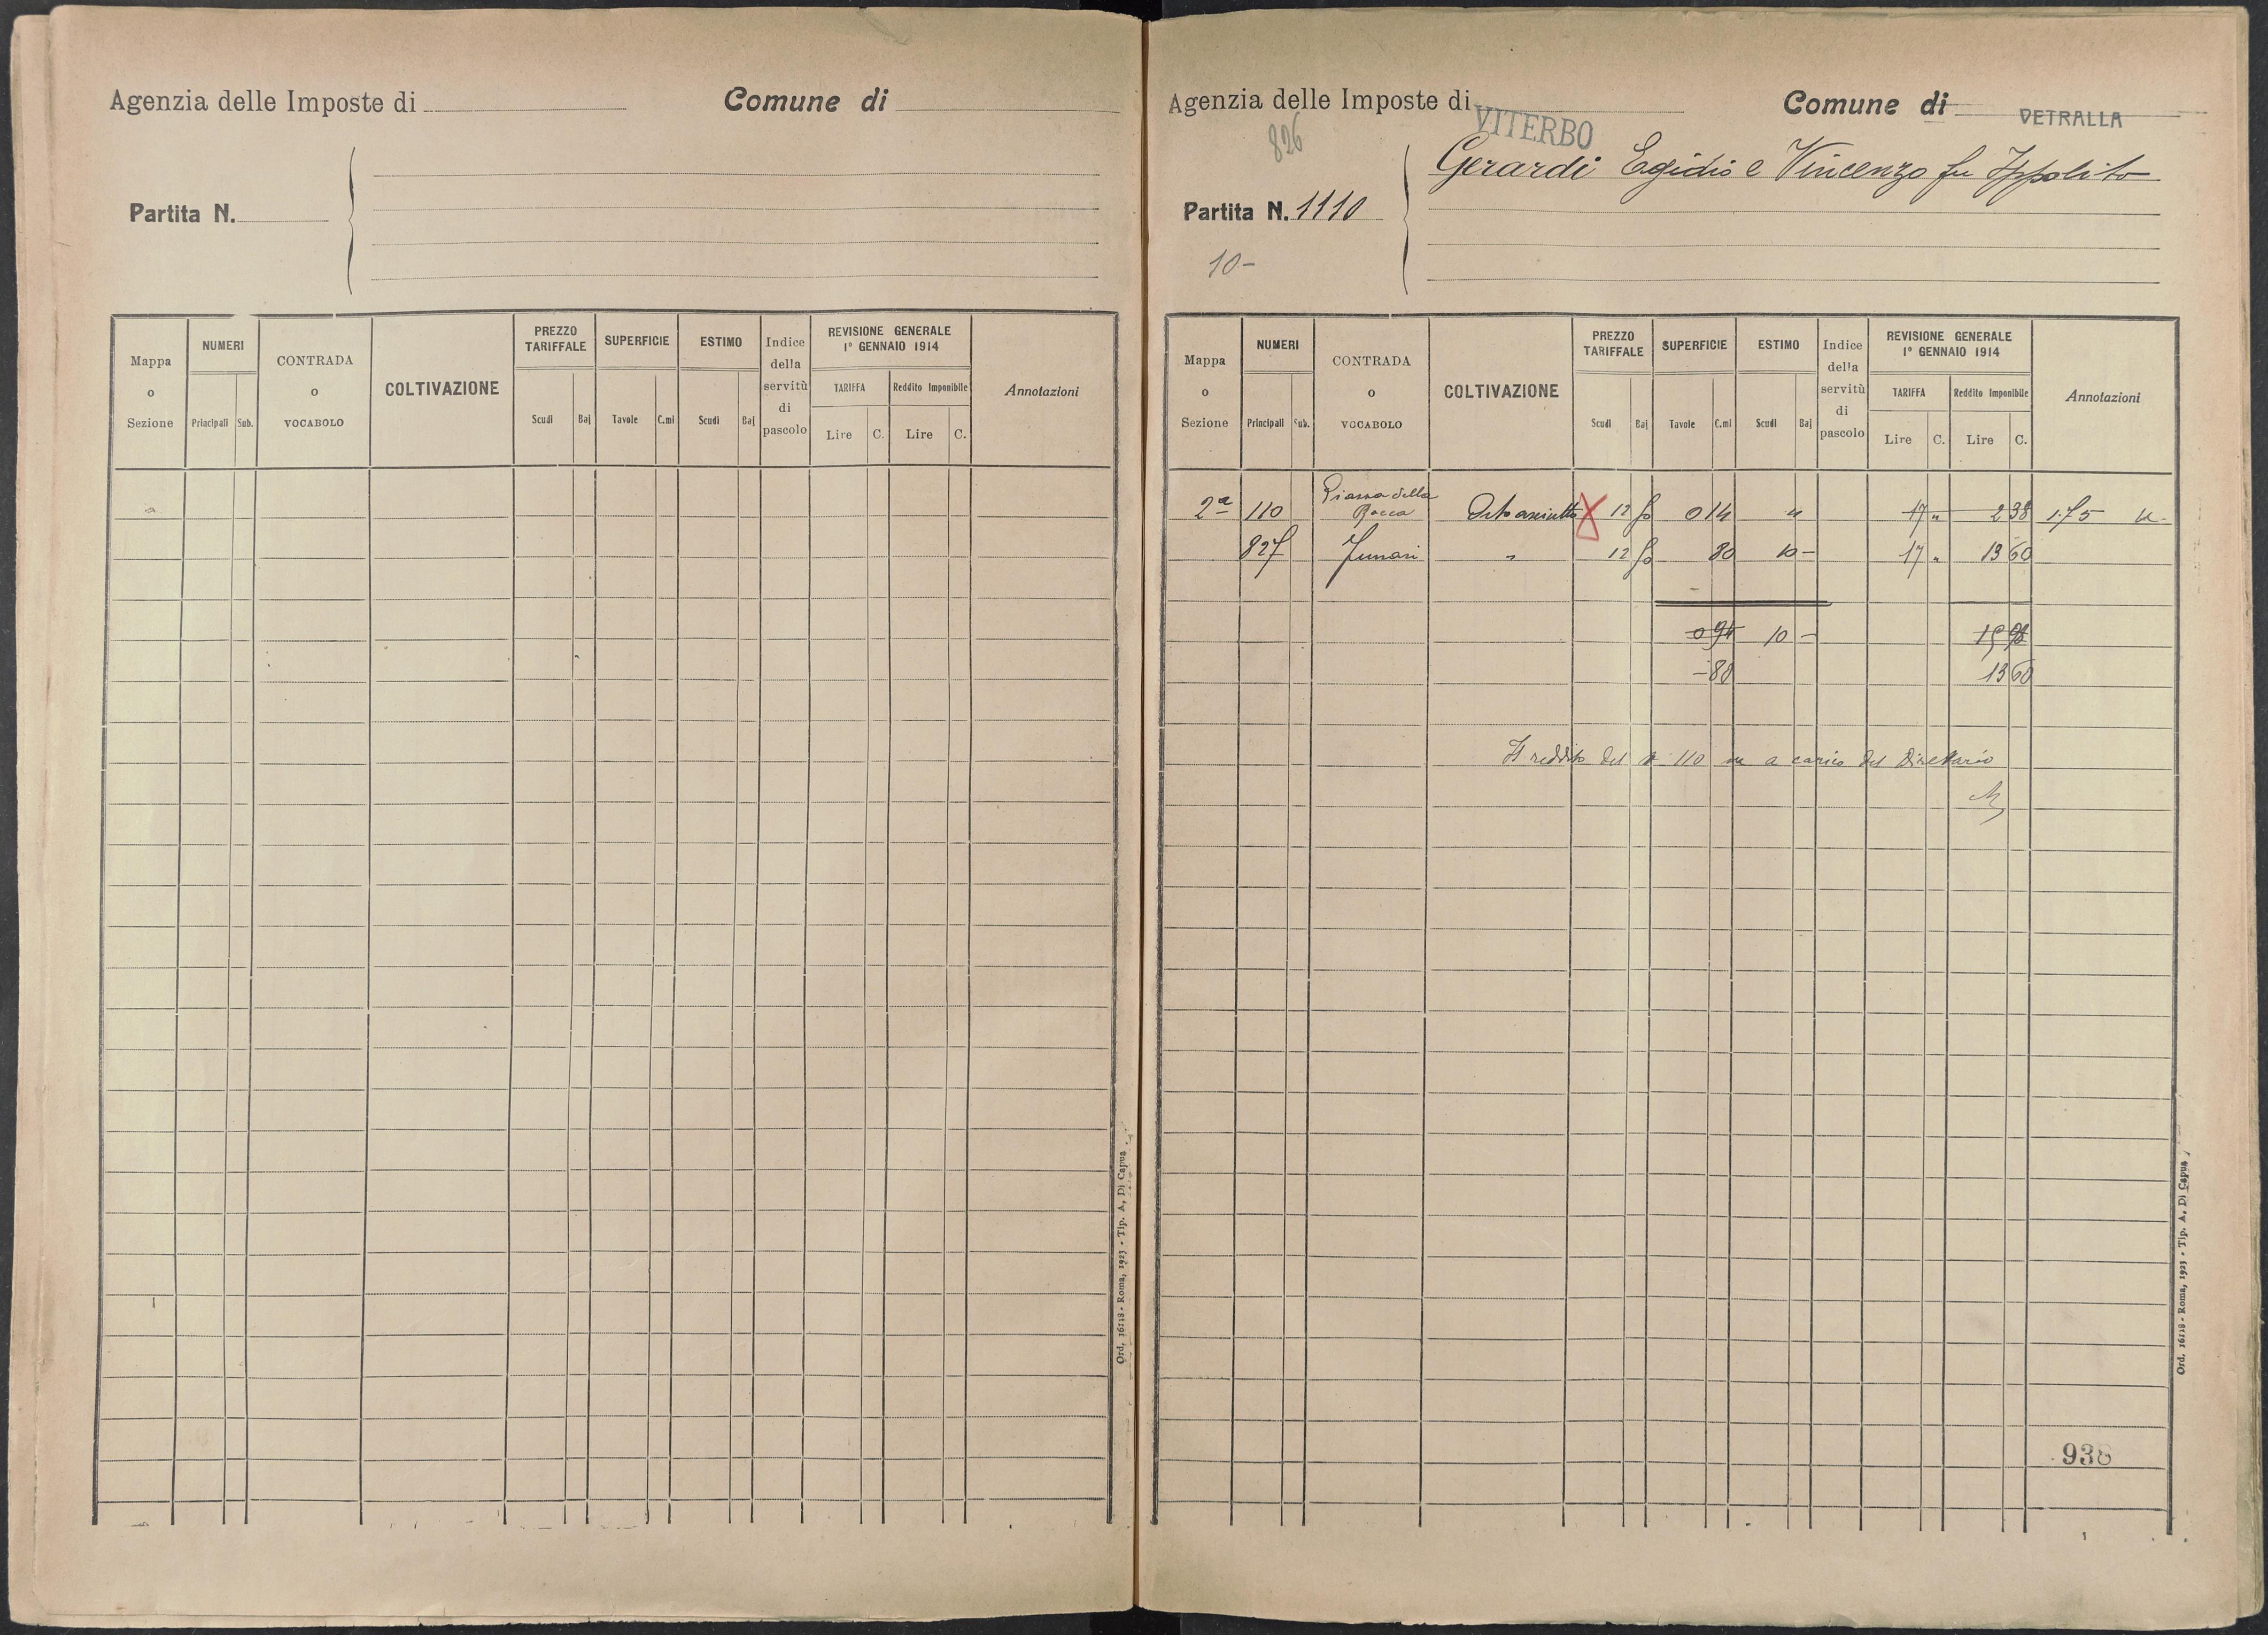 Agenzia delle Imposte di
Comune di
Partita N.
Mappa o Sezione
NUMERI
Principali
Sub.
CONTRADA o VOCABOLO
COLTIVAZIONE
PREZZO TARIFFALE
Scudi
Baj
SUPERFICIE
Tavole
C.mi
ESTIMO
Scudi
Baj
Indice della servitù di pascolo
REVISIONE GENERALE 1° GENNAIO 1914
TARIFFA
Lire
C.
Reddito Imponibile
Lire
C.
Annotazioni
Ord. 16118 - Roma, 1923 - Tip. A. Di Capua
Agenzia delle Imposte di VITERBO
Comune di VETRALLA
826
Gerardi Egidio e Vincenzo fu Ippolito
Partita N. 1110
10-
Mappa o Sezione
NUMERI
Principali
Sub.
CONTRADA o VOCABOLO
COLTIVAZIONE
PREZZO TARIFFALE
Scudi
Baj
SUPERFICIE
Tavole
C.mi
ESTIMO
Scudi
Baj
Indice della servitù di pascolo
REVISIONE GENERALE 1° GENNAIO 1914
TARIFFA
Lire
C.
Reddito Imponibile
Lire
C.
Annotazioni
2a 110 Piazza della Rocca Orto asciutto X 12 50 0 14 " 17 " 2 38 175
827 " 12 50 80 10 - 17 " 13 60
0 94 10 - 15 98
- 80 13 60
Il reddito del n 110 va a carico del Direttario
938
Ord. 16118 - Roma, 1923 - Tip. A. Di Capua